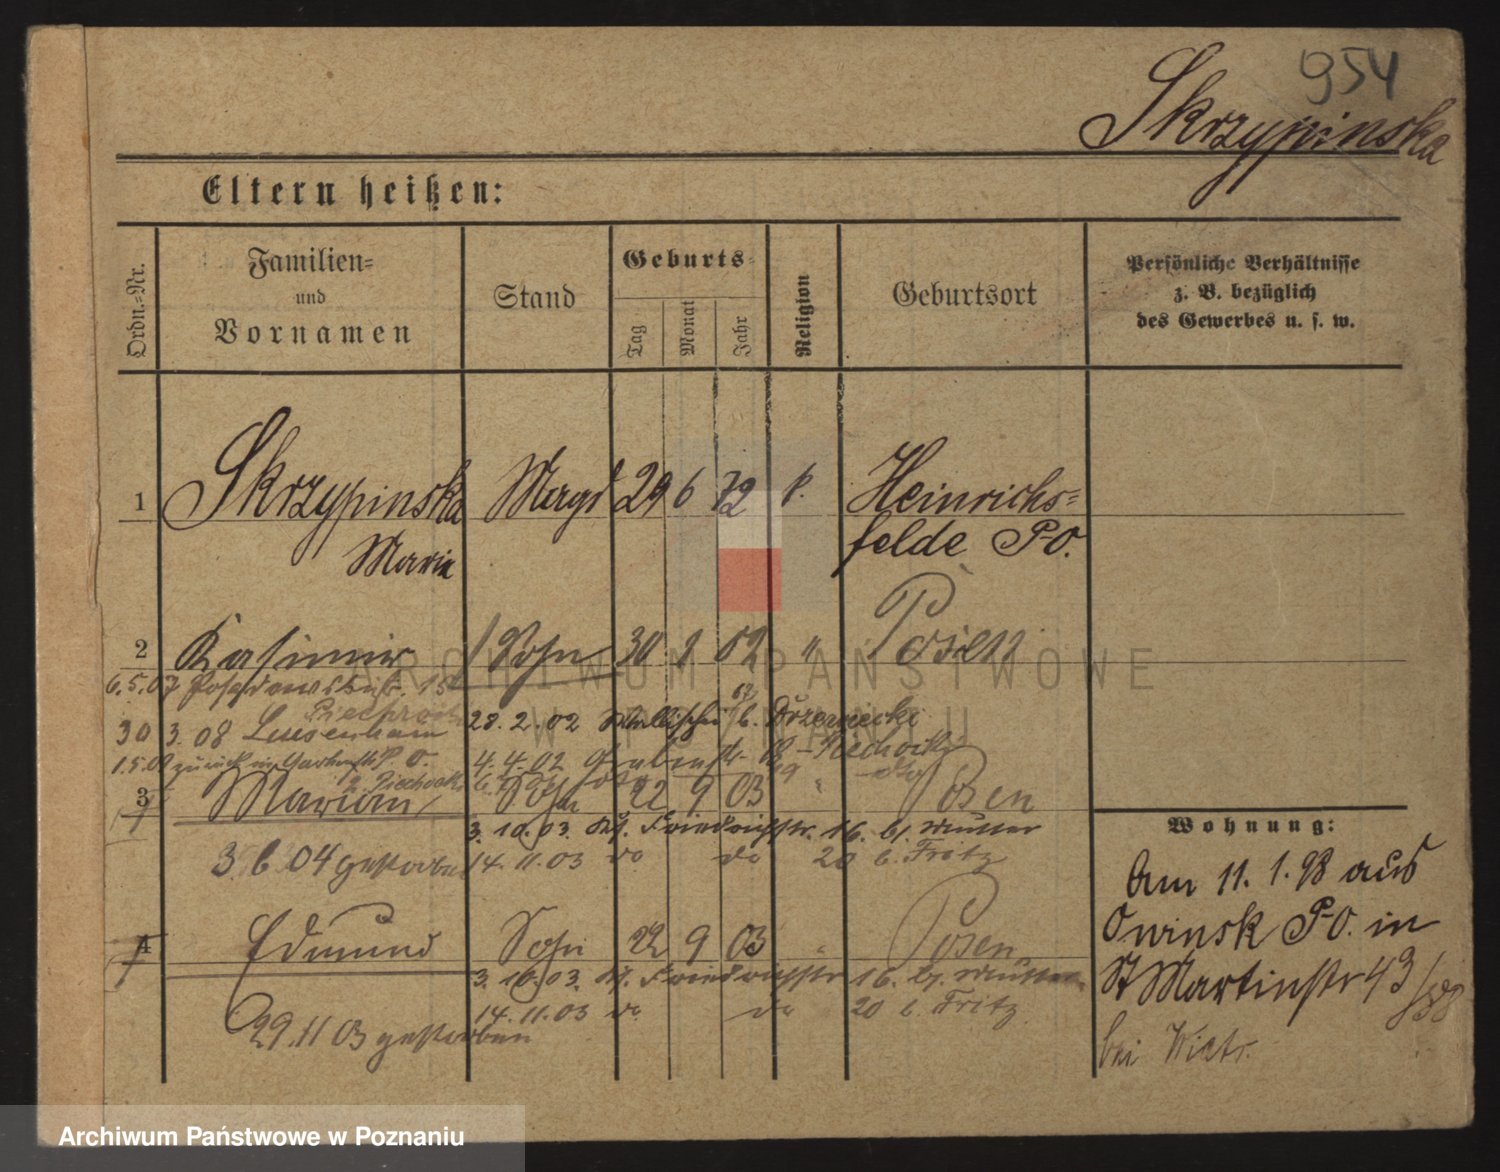 954
Skrzypinska
Eltern heißen:
Ordn.-Nr.
Familien-
und
Vornamen
Stand
Geburts-
Tag
Monat
Jahr
Religion
Geburtsort
Persönliche Verhältnisse
z. B. bezüglich
des Gewerbes u. s. w.
1 Skrzypinska Magd 29 6 72 k. Heinrichs-
Marie felde P-O.
2 Kasimir Sohn 30 1 02 " Posen
6.5.07 15
30 3.08 Luisenhain 28. 2. 02 b. Drzewiecki
1.5.08 zurück P. O. 4. 4. 02 Grabenstr.
3 Marian Sohn 22 9 03 Posen
3. 10. 03. Friedrichstr. 16. b. Mutter
3. 6. 04 gestorben 14. 11. 03 do do 20 b. Fritz
4 Edmund Sohn 22 9 03 " Posen
3. 10. 03. Friedrichstr 16. b. Mutter
14. 11. 03 do do 20 b. Fritz
29. 11 03 gestorben
Wohnung:
Am 11. 1. 98 aus
Owinsk P-O. in
St Martinstr 43
bei
ARCHIWUM PAŃSTWOWE
W POZNANIU
Archiwum Państwowe w Poznaniu